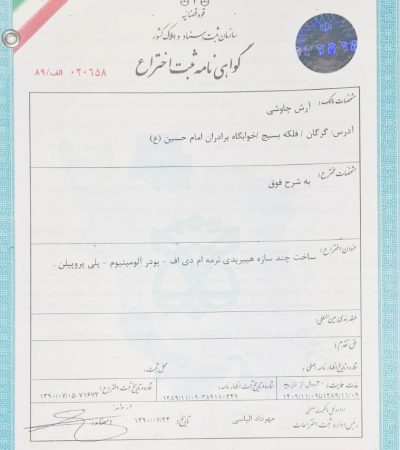 قوه قضائیه
سازمان ثبت اسناد و املاک کشور
گواهی نامه ثبت اختراع
۰۲۰۶۵۸ الف/۸۹
مشخصات مالک:
آرش چاوشی
آدرس: گرگان / فلکه بسیج /خوابگاه برادران امام حسین (ع)
مشخصات مخترع:
به شرح فوق
عنوان اختراع:
ساخت چند سازه هیبریدی نرمه ام دی اف - پودر آلومینیوم - پلی پروپیلن .
طبقه بندی بین المللی:
حق تقدم:
شماره و تاریخ اظهارنامه اصلی:
محل ثبت:
مدت حمایت: ۲۰ سال از تاریخ
شماره و تاریخ ثبت اظهارنامه:
شماره و تاریخ ثبت اختراع:
۱۳۸۹/۱۱/۰۹-۳۸۹۱۱۰۲۴۹
۱۳۹۰/۰۷/۰۵-۷۱۶۷۳
اداره کل مالکیت صنعتی
رئیس اداره ثبت اختراعات
مهرداد الیاسی
تاریخ: ۱۳۹۰/۰۷/۲۴
امضاء: